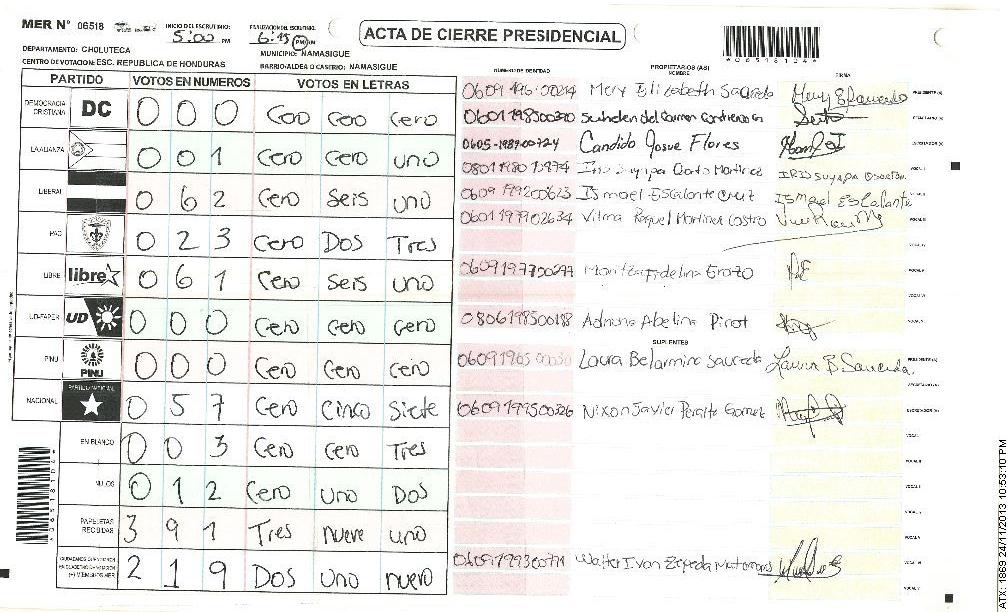 MER Nº 06518 INICIO DEL ESCRUTINIO: 5:00 PM FINALIZACION DEL ESCRUTINIO: 6:45 PM ACTA DE CIERRE PRESIDENCIAL
DEPARTAMENTO: CHOLUTECA MUNICIPIO: NAMASIGUE
CENTRO DE VOTACION: ESC. REPUBLICA DE HONDURAS BARRIO-ALDEA O CASERIO: NAMASIGUE
*06518104*
PARTIDO VOTOS EN NUMEROS VOTOS EN LETRAS
DEMOCRACIA CRISTIANA DC 0 0 0 Cero Cero Cero
LA ALIANZA 0 0 1 Cero Cero uno
LIBERAL 0 6 2 Cero Seis uno
PAC 0 23 Cero Dos Tres
LIBRE libre 0 6 1 Cero Seis uno
UD-FAPER UD 0 0 0 Cero Cero Cero
PINU PINU 0 0 0 Cero Cero Cero
NACIONAL PARTIDO NACIONAL 0 5 7 Cero Cinco Siete
EN BLANCO 0 0 3 Cero Cero Tres
NULOS 0 1 2 Cero uno Dos
PAPELETAS RECIBIDAS 3 9 1 Tres nueve uno
2 1 9 Dos uno
NUMERO DE IDENTIDAD PROPIETARIOS (AS) NOMBRE FIRMA
Mery Elizabeth PRESIDENTE (A)
0601198500390 del Carmen SECRETARIO (A)
0605-1989-00724 Candido Josue Flores ESCRUTADOR (A)
Martinez IRIS SUYAPA VOCAL I
Ismael Escalante Cruz Ismael Escalante VOCAL II
0601197902634 Vilma Raquel Martinez Castro VOCAL III
VOCAL IV
0609197700277 VOCAL V
VOCAL VI
0806198500188 Adriana Abelina VOCAL V
SUPLENTES
Laura Belarmina Sauceda Laura B Sauceda PRESIDENTE (A)
SECRETARIO (A)
0609199500326 Nixon Javier Peralta Gomez ESCRUTADOR (A)
VOCAL I
VOCAL II
VOCAL III
VOCAL IV
VOCAL V
Walter Ivan Zepeda
VOCAL V
*06518104*
ATX: 1869 24/11/2013 10:53:10 PM